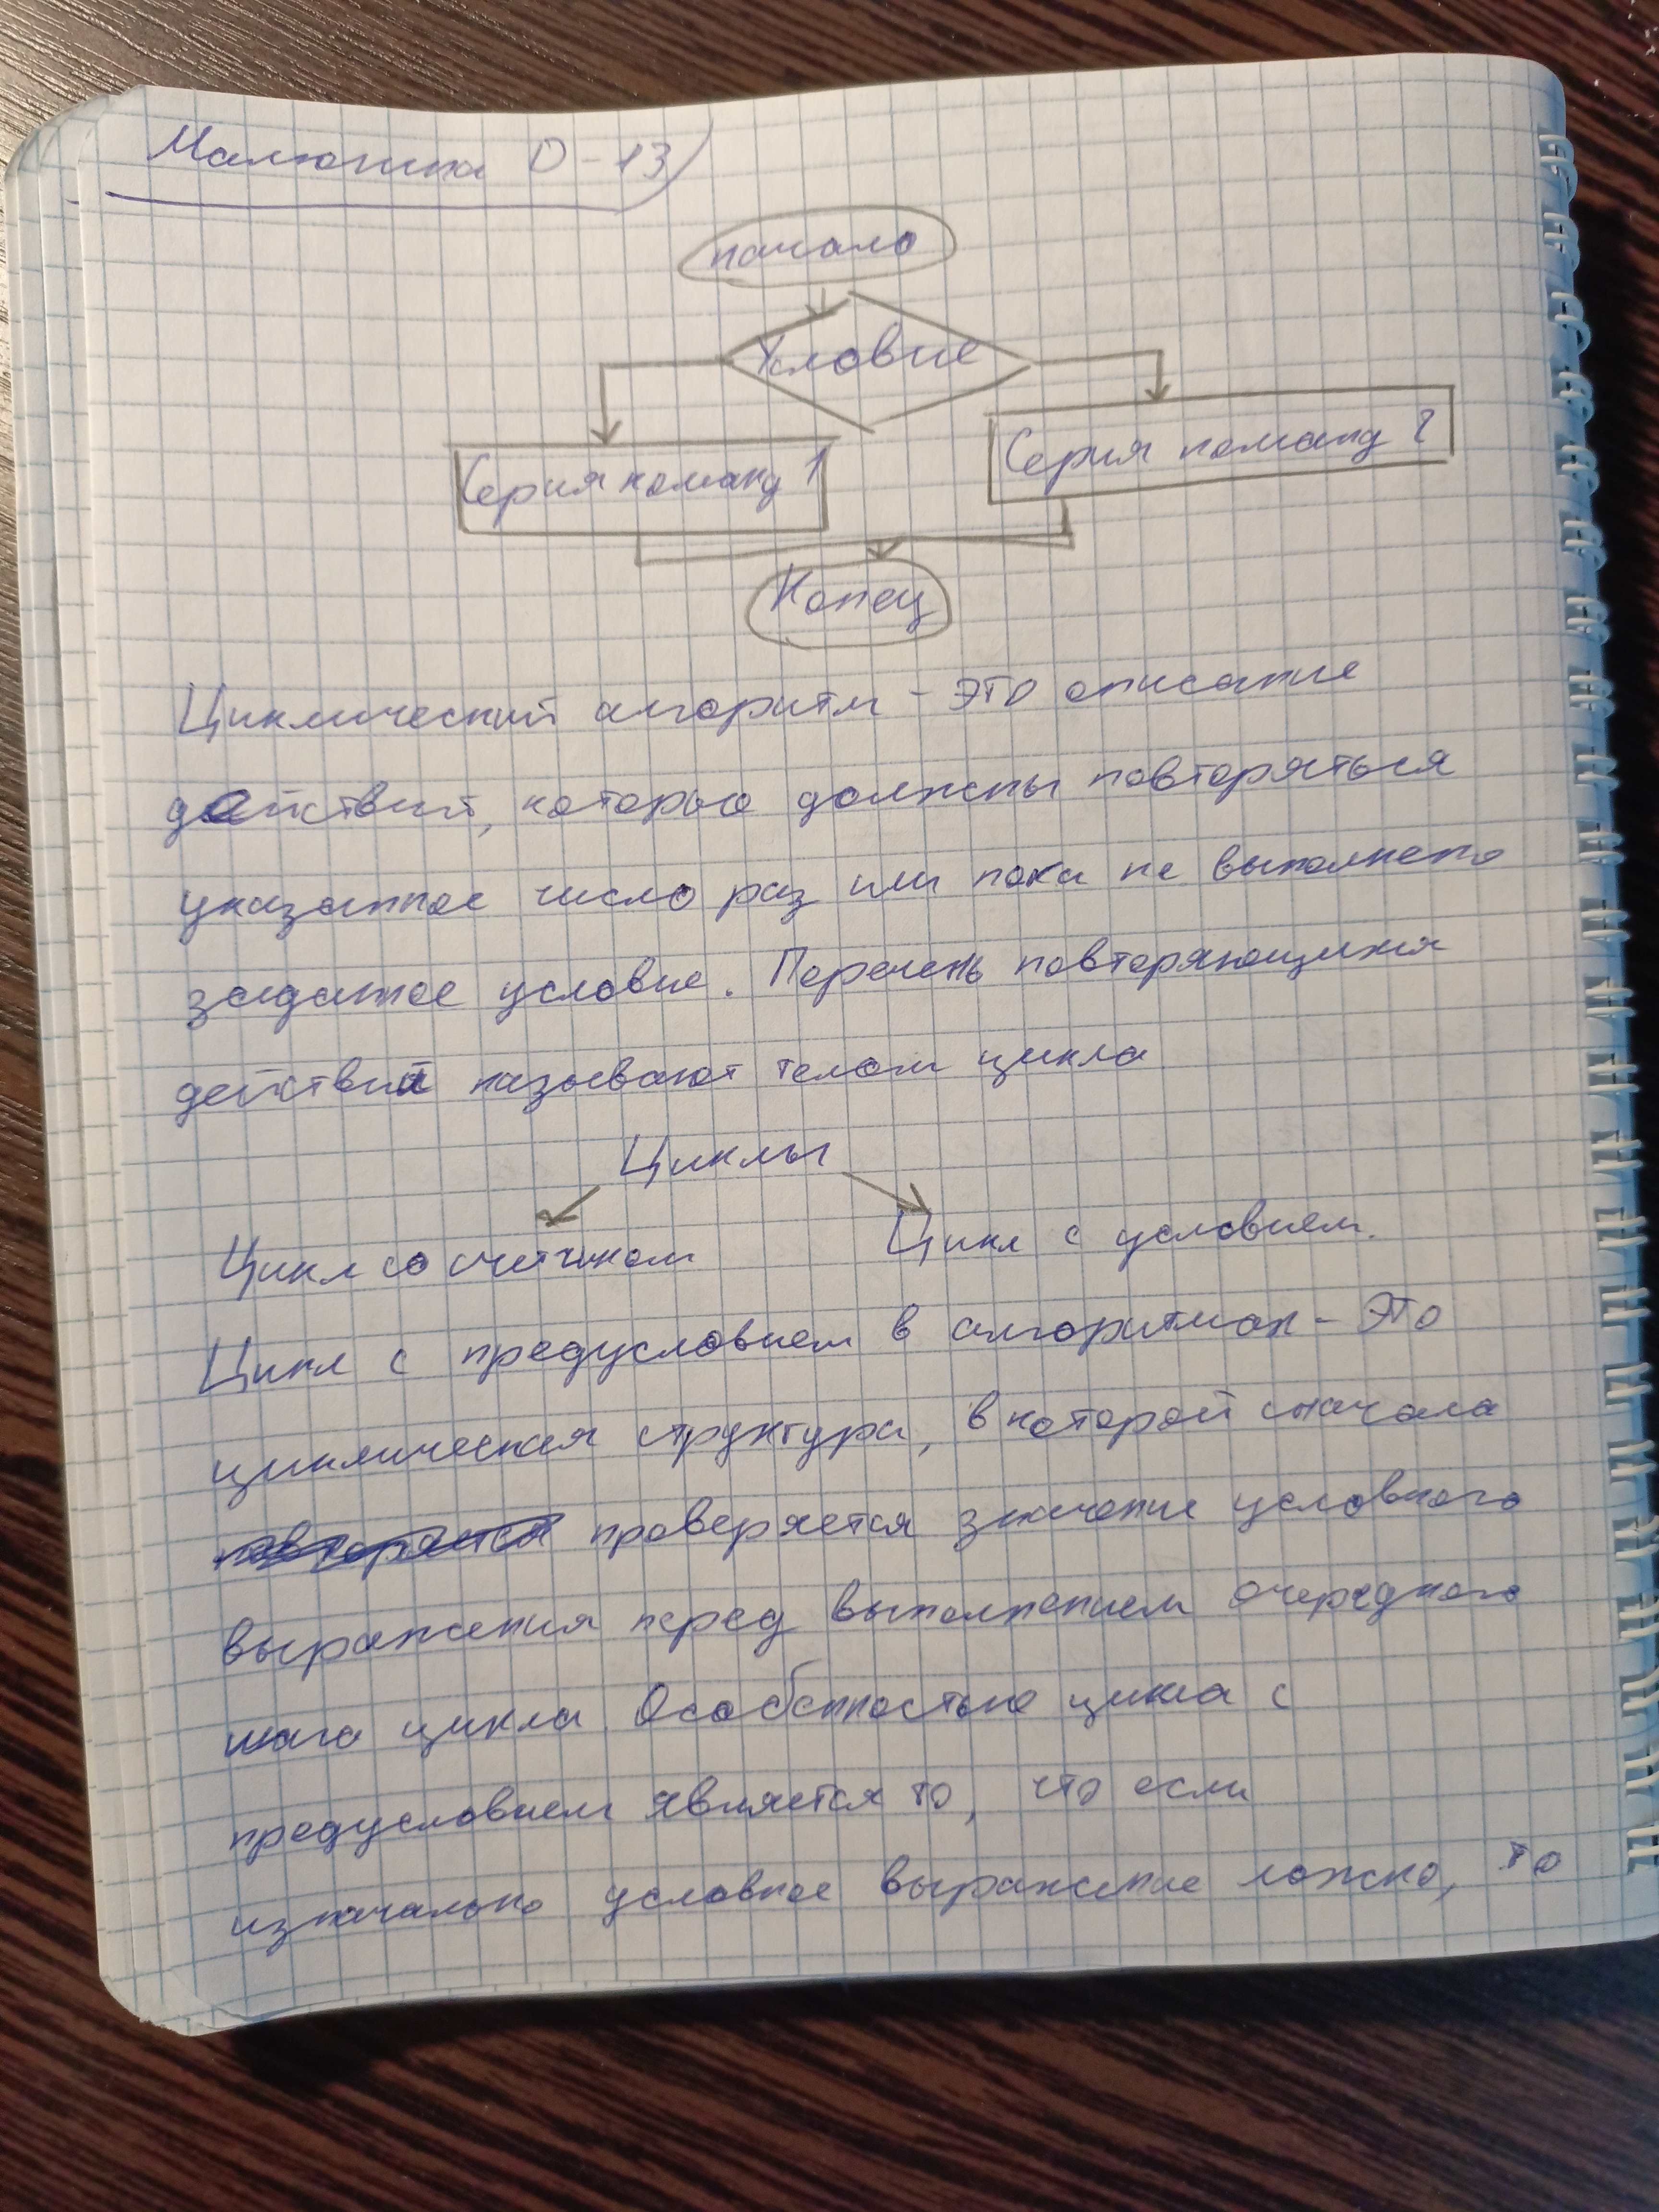 Малюшка О-13
начало
Условие
Серия команд 1
Серия команд 2
Конец
Циклический алгоритм - это описание
действий, которые должны повторяться
указанное число раз или пока не выполнено
заданное условие. Перечень повторяющихся
действий называют телом цикла
Циклы
Цикл со счетчиком
Цикл с условием.
Цикл с предусловием в алгоритмах - это
циклическая структура, в которой сначала
повторяется проверяется значение условного
выражения перед выполнением очередного
шага цикла. Особенностью цикла с
предусловием является то, что если
изначально условное выражение ложно, то